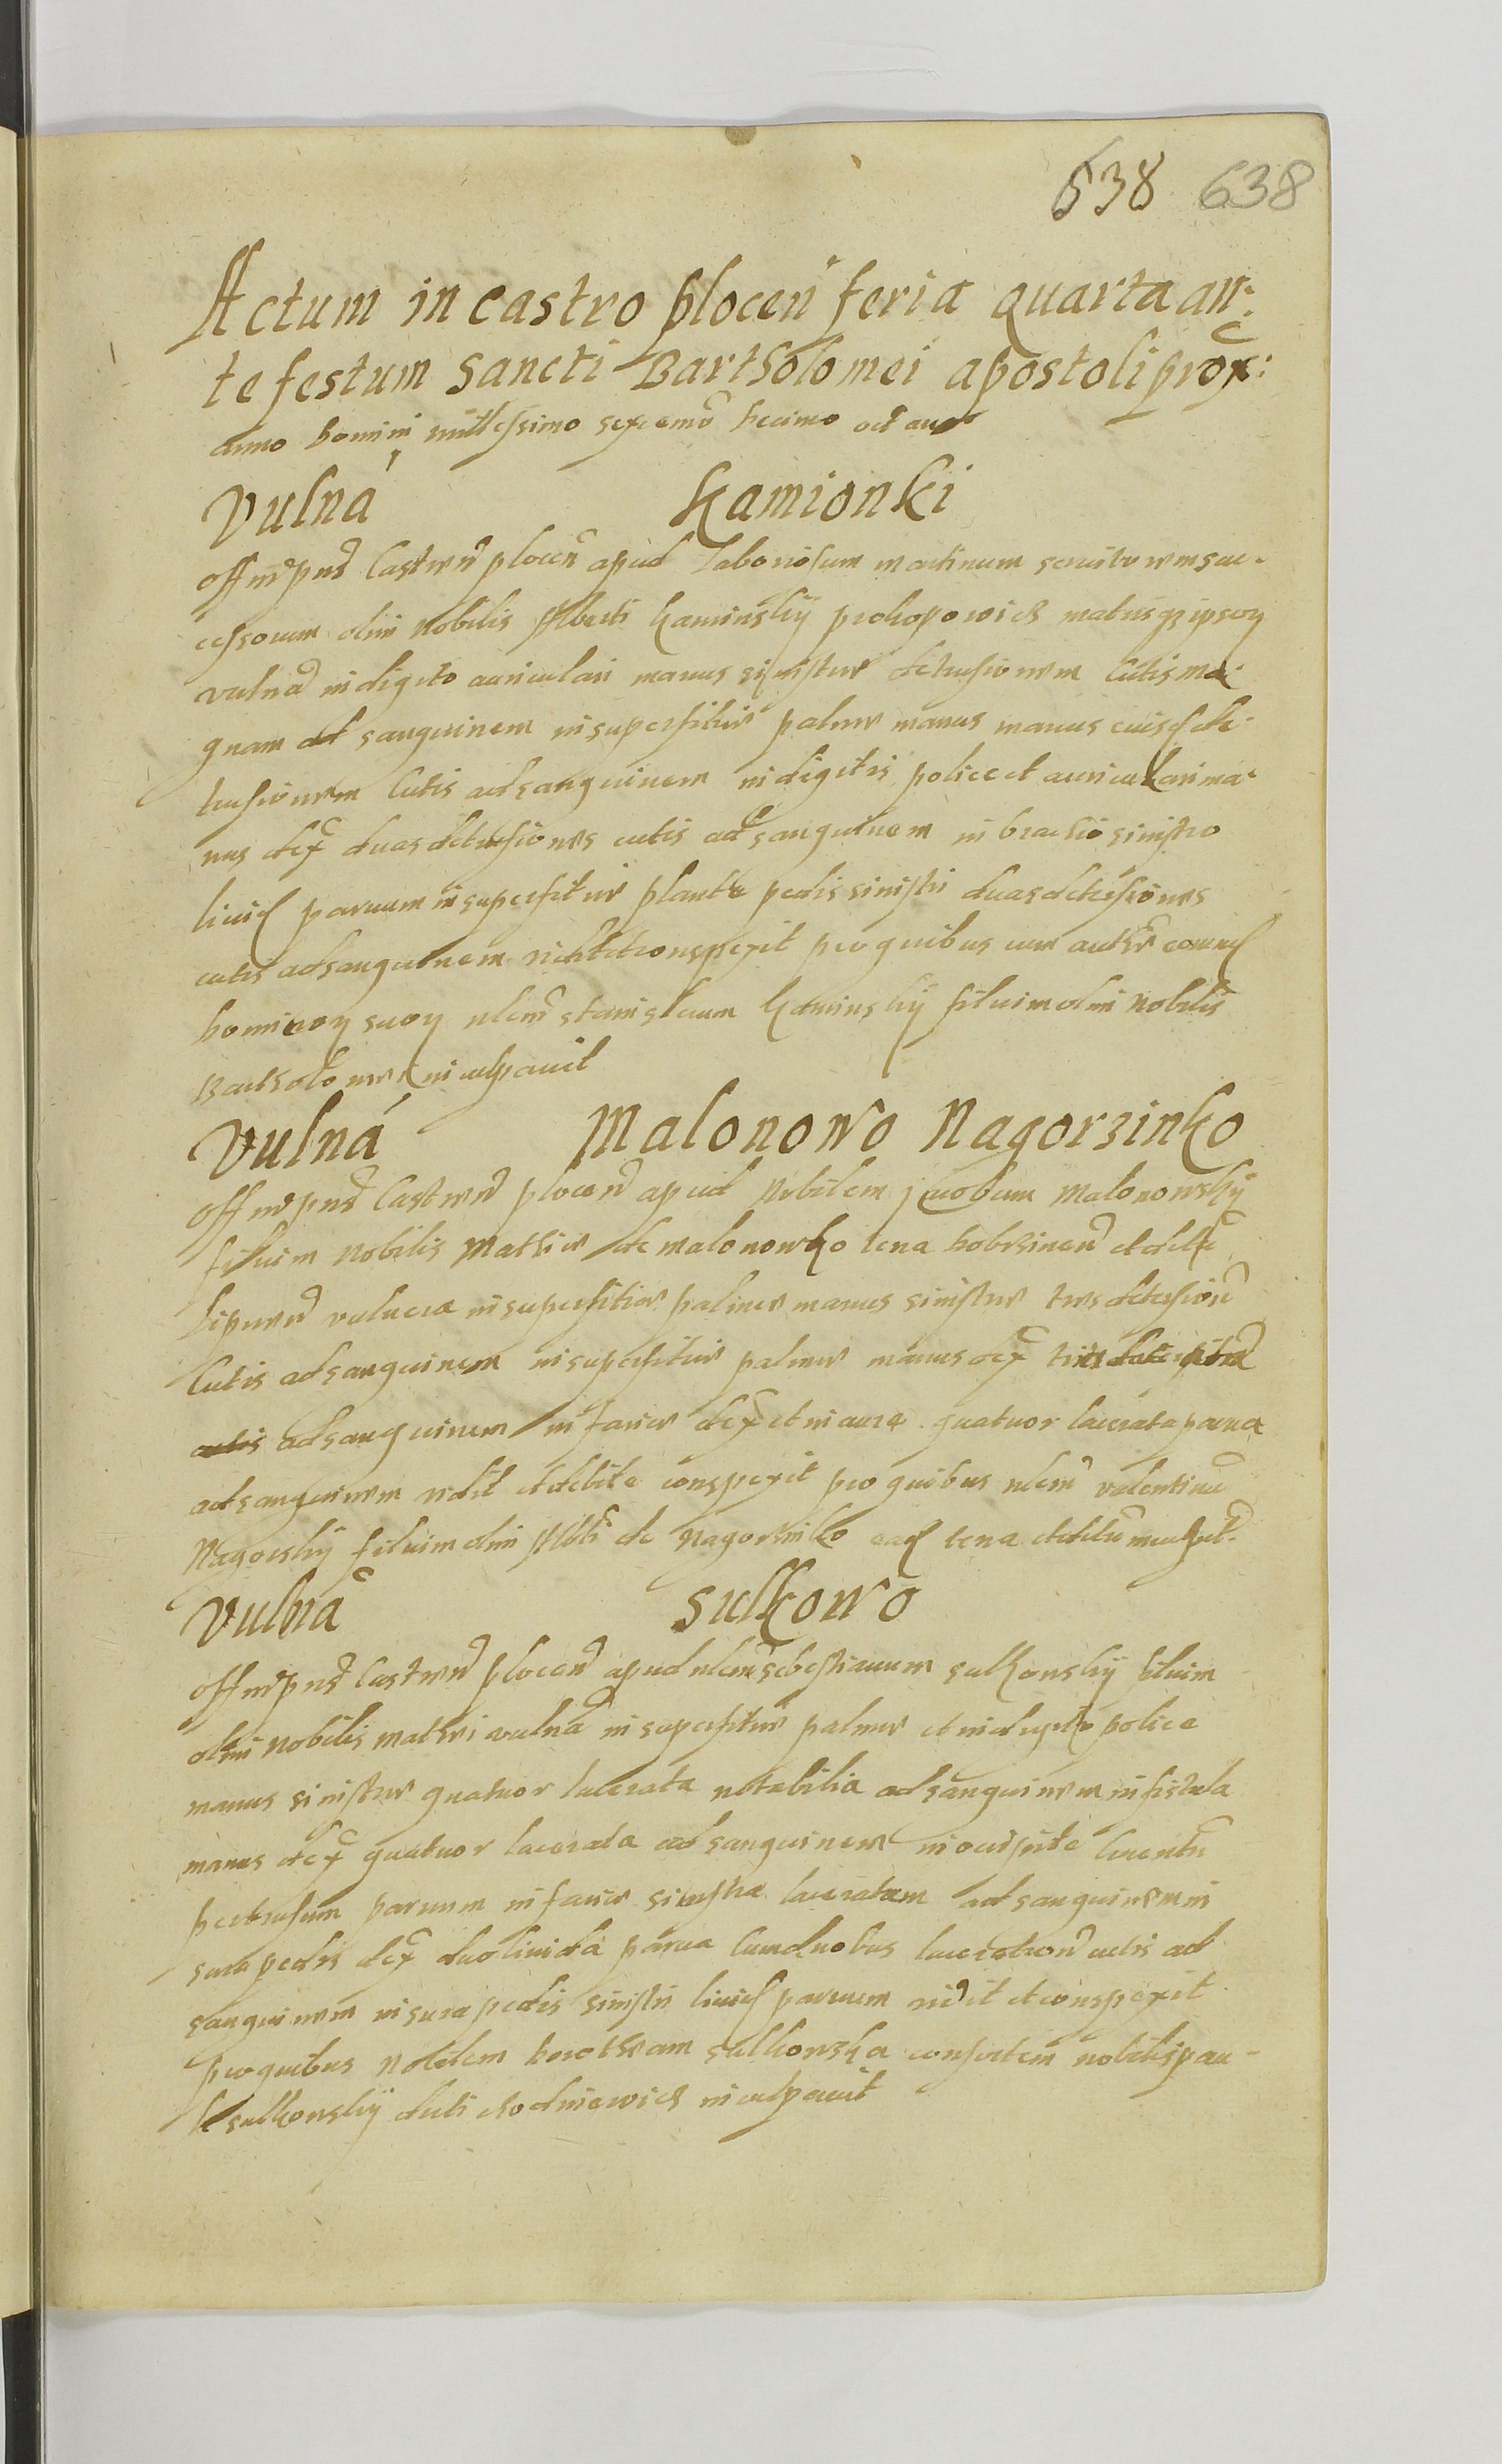 638 638
Actum in castro plocen feria quarta an:
te festum sancti Bartholomei apostoli prox:
anno domini millessimo sexcento decimo octavo
Vulna Kamionki
Off pns Castren plocen apud Laboriosum martinum servitorem suc-
cessorum olim Nobilis Alberti Kaminskÿ prokopowich
vulna in digito auriculari manus sinistre detrusionem Cutis ma-
gnam ad sanguinem in superficie palme manus manus eiusd de-
trusionem Cutis ad sanguinem in digitis police et auriculari ma-
nus dex duas detrusiones cutis ad sanguinem in brachio sinistro
livid parvum in superficie plante pedis sinistri duas detrusiones
cutis ad sanguinem vidit et conspexit pro quibus cum
dominor suor stanislaum Kaminskÿ filium olim Nobilis
Bartholomei inculpavit
Vulna Malonowo Nagorzinko
Off pns Castren plocen apud Nobilem jacobum Malonowskÿ
filium Nobilis Mathie de malonowko terra dobrzinen et
Lipnen vulnera in superficie palme manus sinistre tres detrusion
Cutis ad sanguinem in superficie palme manus dex
cutis ad sanguinem in facie dex et in aure quatuor lacerata parva
ad sanguinem vidit et debite conspexit pro quibus valentinu
Nagorskÿ filium olim de Nagorzinko ead terra
Vulna Sulkowo
Off pns Castren plocen apud sebestianum sulkowskÿ filium
olim Nobilis mathei vulna in superficie palme et in digito police
manus sinistre quatuor lacerata notabilia ad sanguinem in fistula
manus dex quatuor lacerata ad sanguinem in occipite cruentu
pertusum parvum in facie sinistra laceratam ad sanguinem in
sura pedis dex duo livida parva Cum duobus laceration cutis ad
sanguinem in sura pedis sinistri livid parvum vidit et conspexit
pro quibus Nobilem dorotheam sulkowska consortem nobilis pau-
li sulkowskÿ dicti chodniewich inculpavit